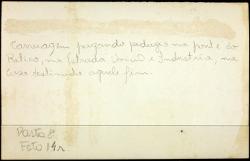 Carruagem pagando pedagio na ponte do
Retiro, na Estrada União e Industria, na
casa destinada aquele fim.
Pasta 8.
Foto 14